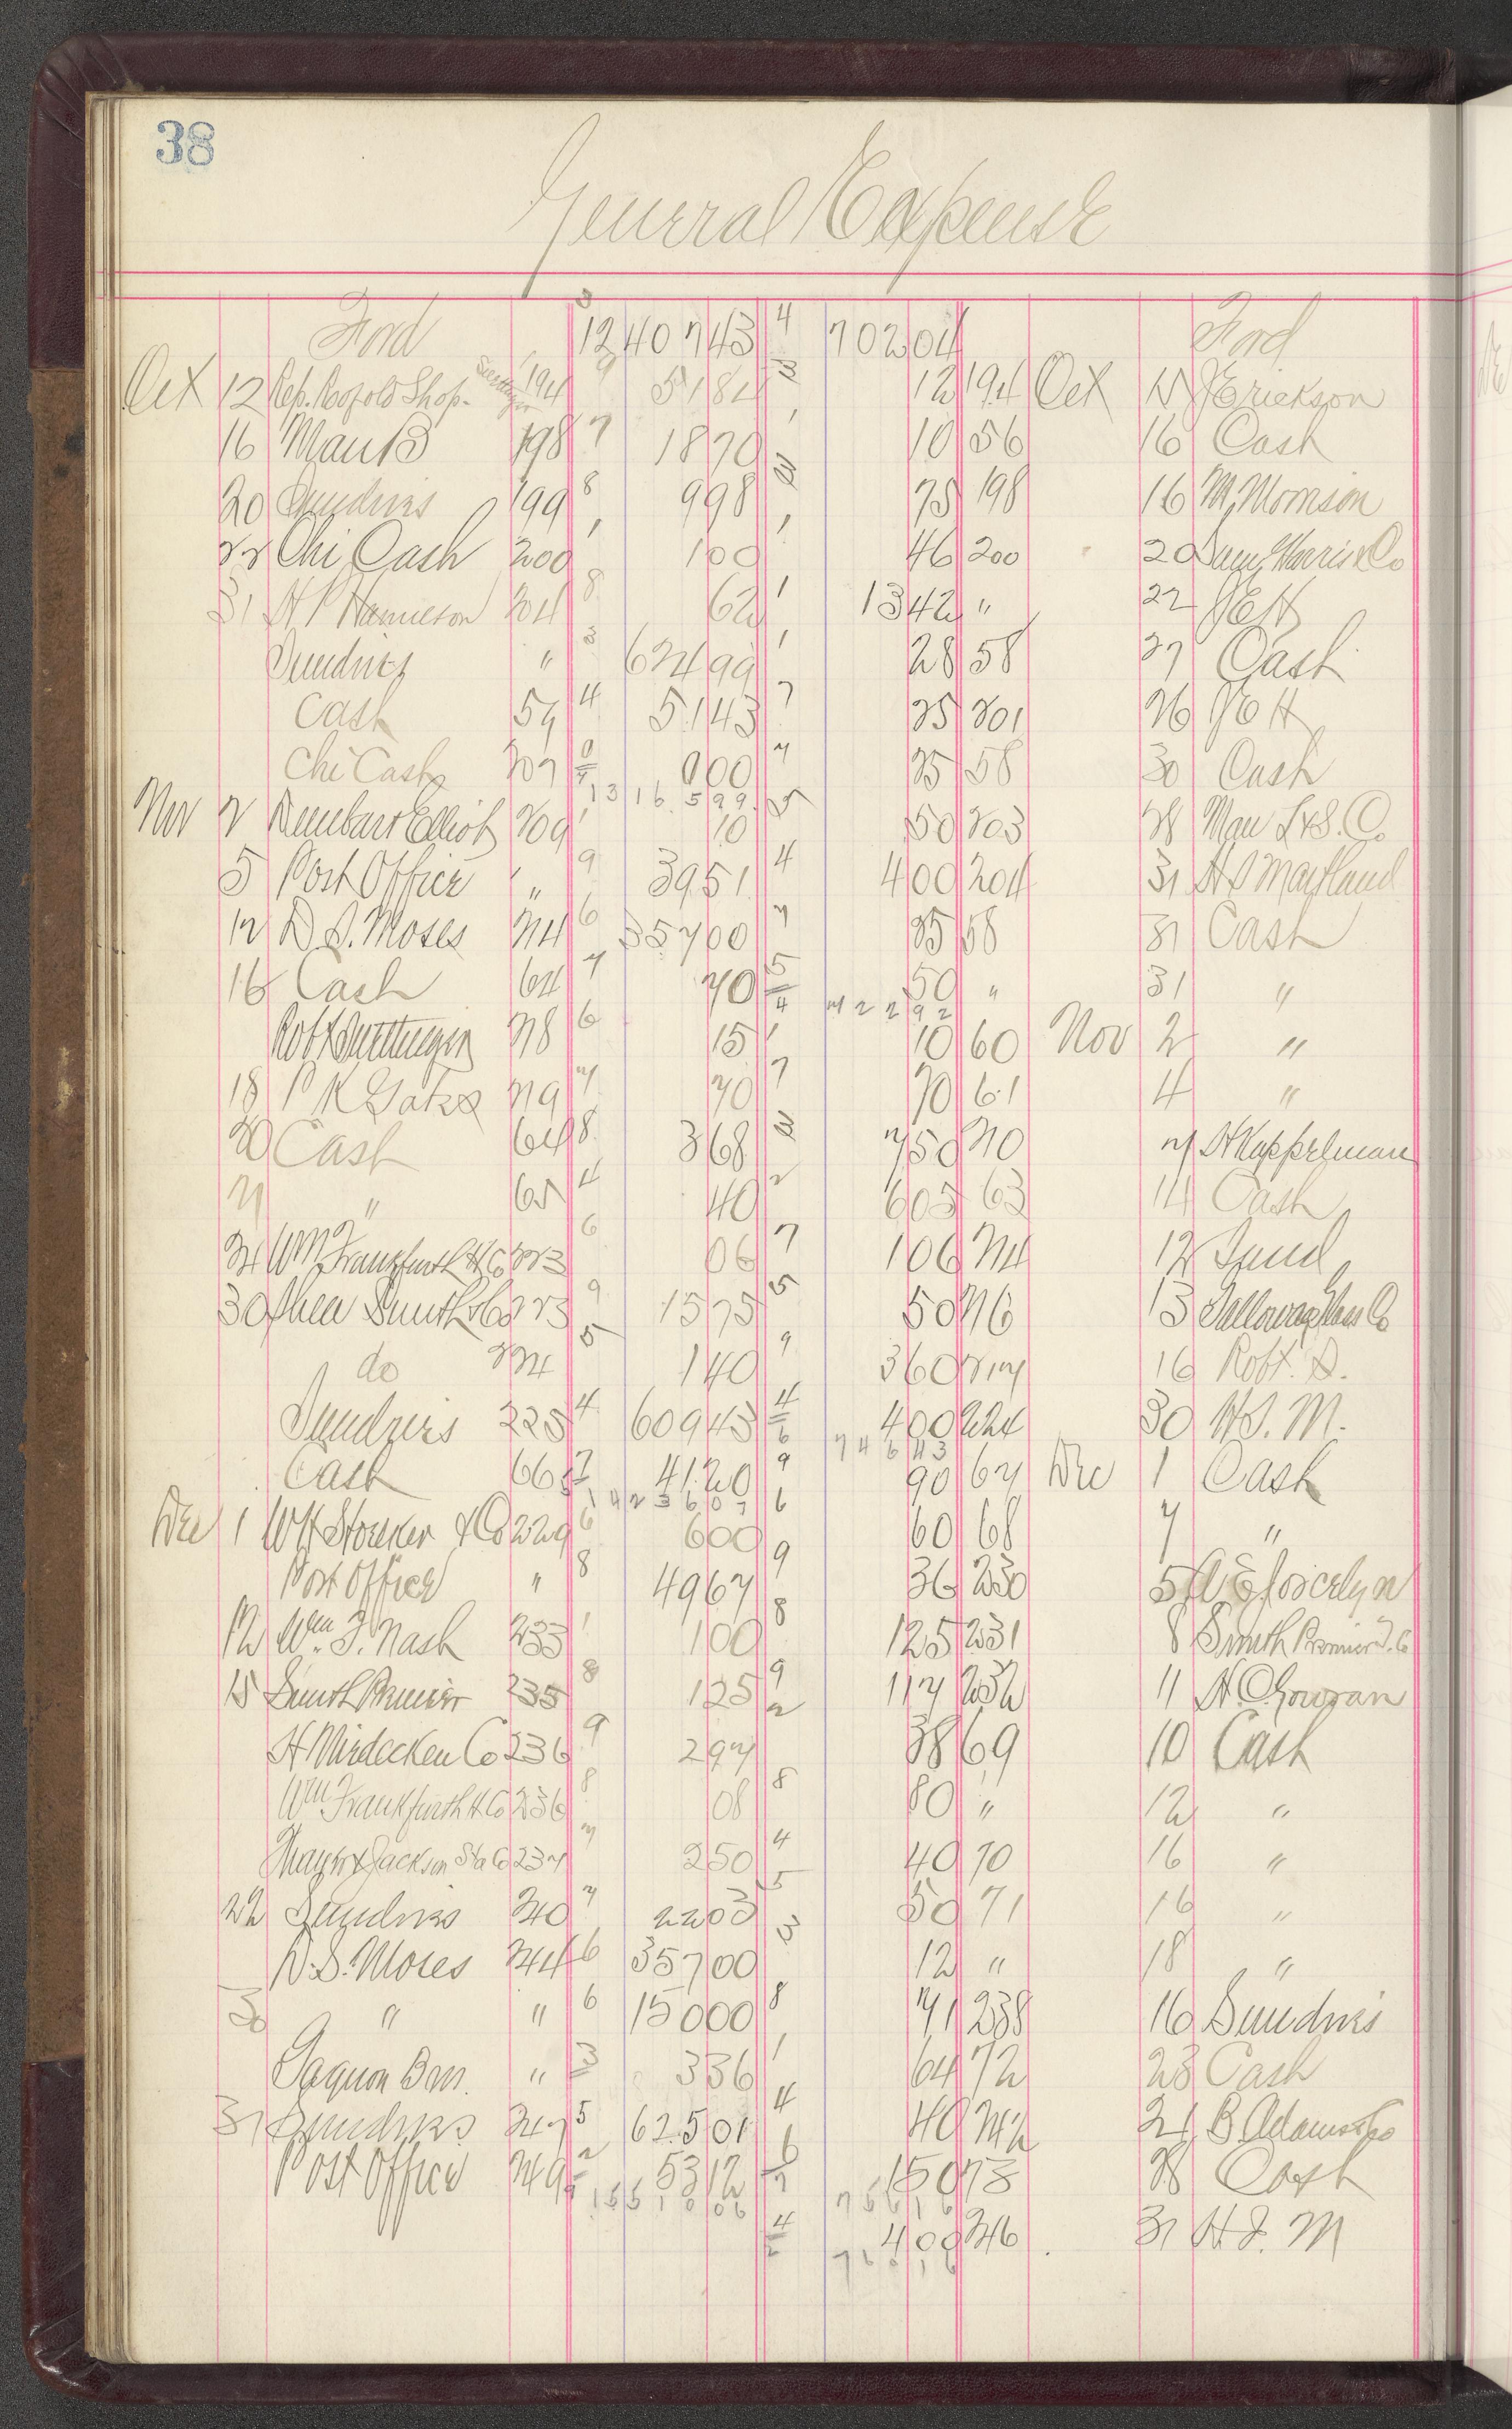 38
General Expense
Ford 3 12407 43 4 702 04 Ford
Oct 12 Rep. Shop- 194 9 51 84 3 12 194 Oct 15 J Erickson
16 Man B 198 7 18 70 1 10 56 16 Cash
20 Sundries 199 8 9 98 3 75 198 16 M Morrison
22 Chi Cash 200 1 1 00 1 46 200 20 Harris & Co
31 H P Hamilton 204 8 62 1 13 42 " 22 J E H
Sundries " 3 624 99 1 28 58 27 Cash
Cash 59 4 51 43 7 25 201 26 J E H
Chi Cash 207 9 00 7 25 58 30 Cash
13 16 5 99
Nov 2 Dunbar & Elliot 209 1 10 5 50 203 28 Man L & S. Co
5 Post Office " 9 39 51 4 4 00 204 31 H S Maryland
12 D. S. Moses 214 6 357 00 7 25 58 31 Cash
16 Cash 64 7 70 5 50 " 31 "
4 7 2 2 9 2
Robt 218 6 15 1 10 60 Nov 2 "
18 P K Gates 219 7 70 7 70 61 4 "
20 Cash 64 8 3 68 3 7 50 210 7 H Kappelman
21 " 65 4 40 2 6 05 63 14 Cash
24 Wm Frankfurth H Co 223 6 06 7 1 06 214 12 Sund
30 Shea Smith & Co 223 9 15 75 5 50 216 13 Galloway Glass Co
do 224 5 1 40 9 3 60 217 16 Robt. S.
Sundries 225 4 609 43 4 4 00 224 30 H. S. M.
6 7 4 6 4 3
Cash 66 7 41 20 9 90 67 Dec 1 Cash
1 4 2 3 6 0 7
Dec 1 W H Stoelker & Co 229 6 6 00 6 60 68 7 "
Post Office " 8 49 67 9 36 230 5 A E Joscelyn
12 Wm. F. Nash 233 1 1 00 8 1 25 231 8 Smith Premier T. Co
15 Smith Premier 235 8 1 25 9 1 17 232 11 H. C. Gowran
H Niedecken Co 236 9 2 97 2 38 69 10 Cash
Wm Frankfurth H Co 236 8 08 8 80 " 12 "
Thayer & Jackson Sta Co 237 7 2 50 4 40 70 16 "
22 Sundries 240 7 22 03 5 50 71 16 "
D. S. Moses 244 6 357 00 3 12 " 18 "
30 " " 6 150 00 8 71 238 16 Sundries
Gagnon Bros. " 3 3 36 1 64 72 23 Cash
31 Sundries 247 5 625 01 4 40 242 21 B Adams & Co
Post Office 249 2 53 12 6 1 50 73 28 Cash
1 5 5 1 0 0 6 7 7 5 6 1 6
4 4 00 246 31 H. S. M
7 6 0 1 6